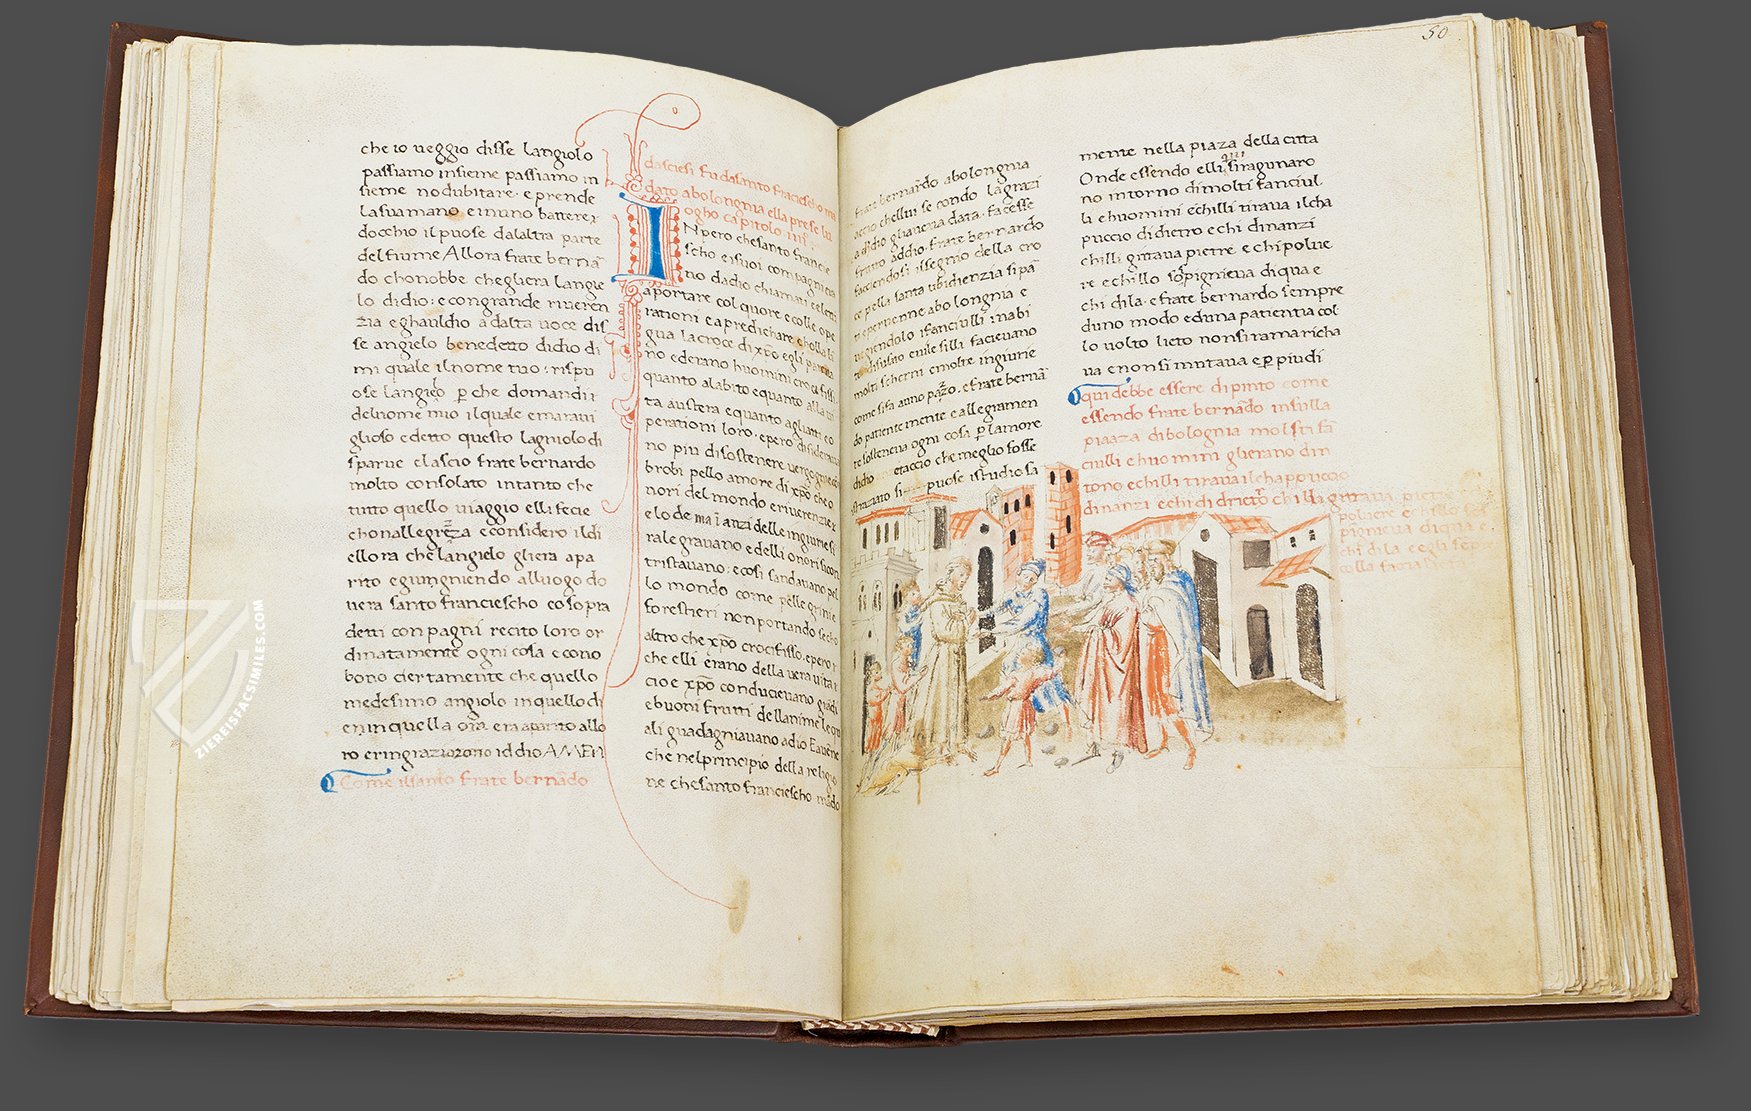 che io veggio disse langiolo
passiamo insieme passiamo in
sieme no dubitare · e prende
la sua mano e inuno battere
docchio il puose dalaltra parte
del fiume Allora frate berna
do chonobbe che gliera langie
lo didio : e con grande riueren
zia e ghaudio ad alta uoce dis
se angielo benedetto didio di
mi quale il nome tuo : rispu
ose langielo per che domandi
del nome mio il quale e maraui
glioso e detto questo lagniolo di
sparue e lascio frate bernardo
molto consolato intanto che
tutto quello uiaggio elli fecie
chon allegrezza e considero il di
ellora che langielo gliera apa
rito e giungniendo alluogo do
uera santo franciescho co sopra
detti conpagni recito loro or
dinatamente ogni cosa e cono
bono ciertamente che quello
medesimo angiolo in quello di
e in quella ora era aparito allo
ro e ringraziorono iddio AMEN
Come il santo frate bernado
dasciesi fu da santo franciescho man
dato abolongnia ella prese lu
ogho capitolo iiii
INpero che santo francie
scho e i suoi compagni era
no da dio chiamati e eletti
aportare col quore e colle ope
rationi e a predichare cholla li
gua la croce di xpo egli pareua
no ed erano huomini crocifissi
quanto alabito e quanto alla ui
ta austera e quanto agliatti e o
perationi loro · e pero disideraua
no piu di sostenere uergogne e o
brobi pello amore di xpo che o
nori del mondo e riuerenzie
e lode mai anzi delle ingiurie si
ralegrauano e delli onori si con
tristauano : e cosi sandauano pel
lo mondo come pellegrini e
forestieri non portando secho
altro che xpo crocifisso · e pero
che elli erano della uera uita
cioe xpo conducieuano grandi
e buoni frutti dellanime le qu
ali guadagniauano a dio E auene
che nel principio della religio
ne che santo franciescho mado
50
frate bernardo abolongnia
accio chellui secondo la grazi
a didio gli aueua data · facesse
frutto addio · frate bernardo
faccendosi il segnio della cro
ce pella santa ubidienzia si pa
ti e peruenne abolongnia e
uegiendolo i fanciulli in abi
to disusato e uile si lli facieuano
molti scherni e molte ingiurie
come si fa a uno pazo · e frate berna
do patiente mente e allegramen
te sosteneua ogni cosa per lamore
didio etaccio che meglio fosse
straziato si puose istudiosa
mente nella piaza della citta
Onde essendo elli qui si ragunaro
no intorno di molti fanciul
li e huomini e chilli tiraua il cha
puccio di dietro e chi dinanzi
chilli gittaua pietre e chi polue
re e chillo sospignieua di qua e
chi di la · e frate bernardo sempre
duno modo e duna patientia col
lo uolto lieto non si ramaricha
ua e non si mutaua e per piu di
qui debbe essere dipinto come
essendo frate bernado in sulla
piaaza di bologna molti fa
ciulli e huomini glierano din
torno e chilli tiraua il chappuccio
dinanzi e chi di drieto chilli gittaua pietre
poluere e chillo sos
pignieua di qua e
chi di la e egli sepr
colla facia lieta
ZIEREISFACSIMILES.COM